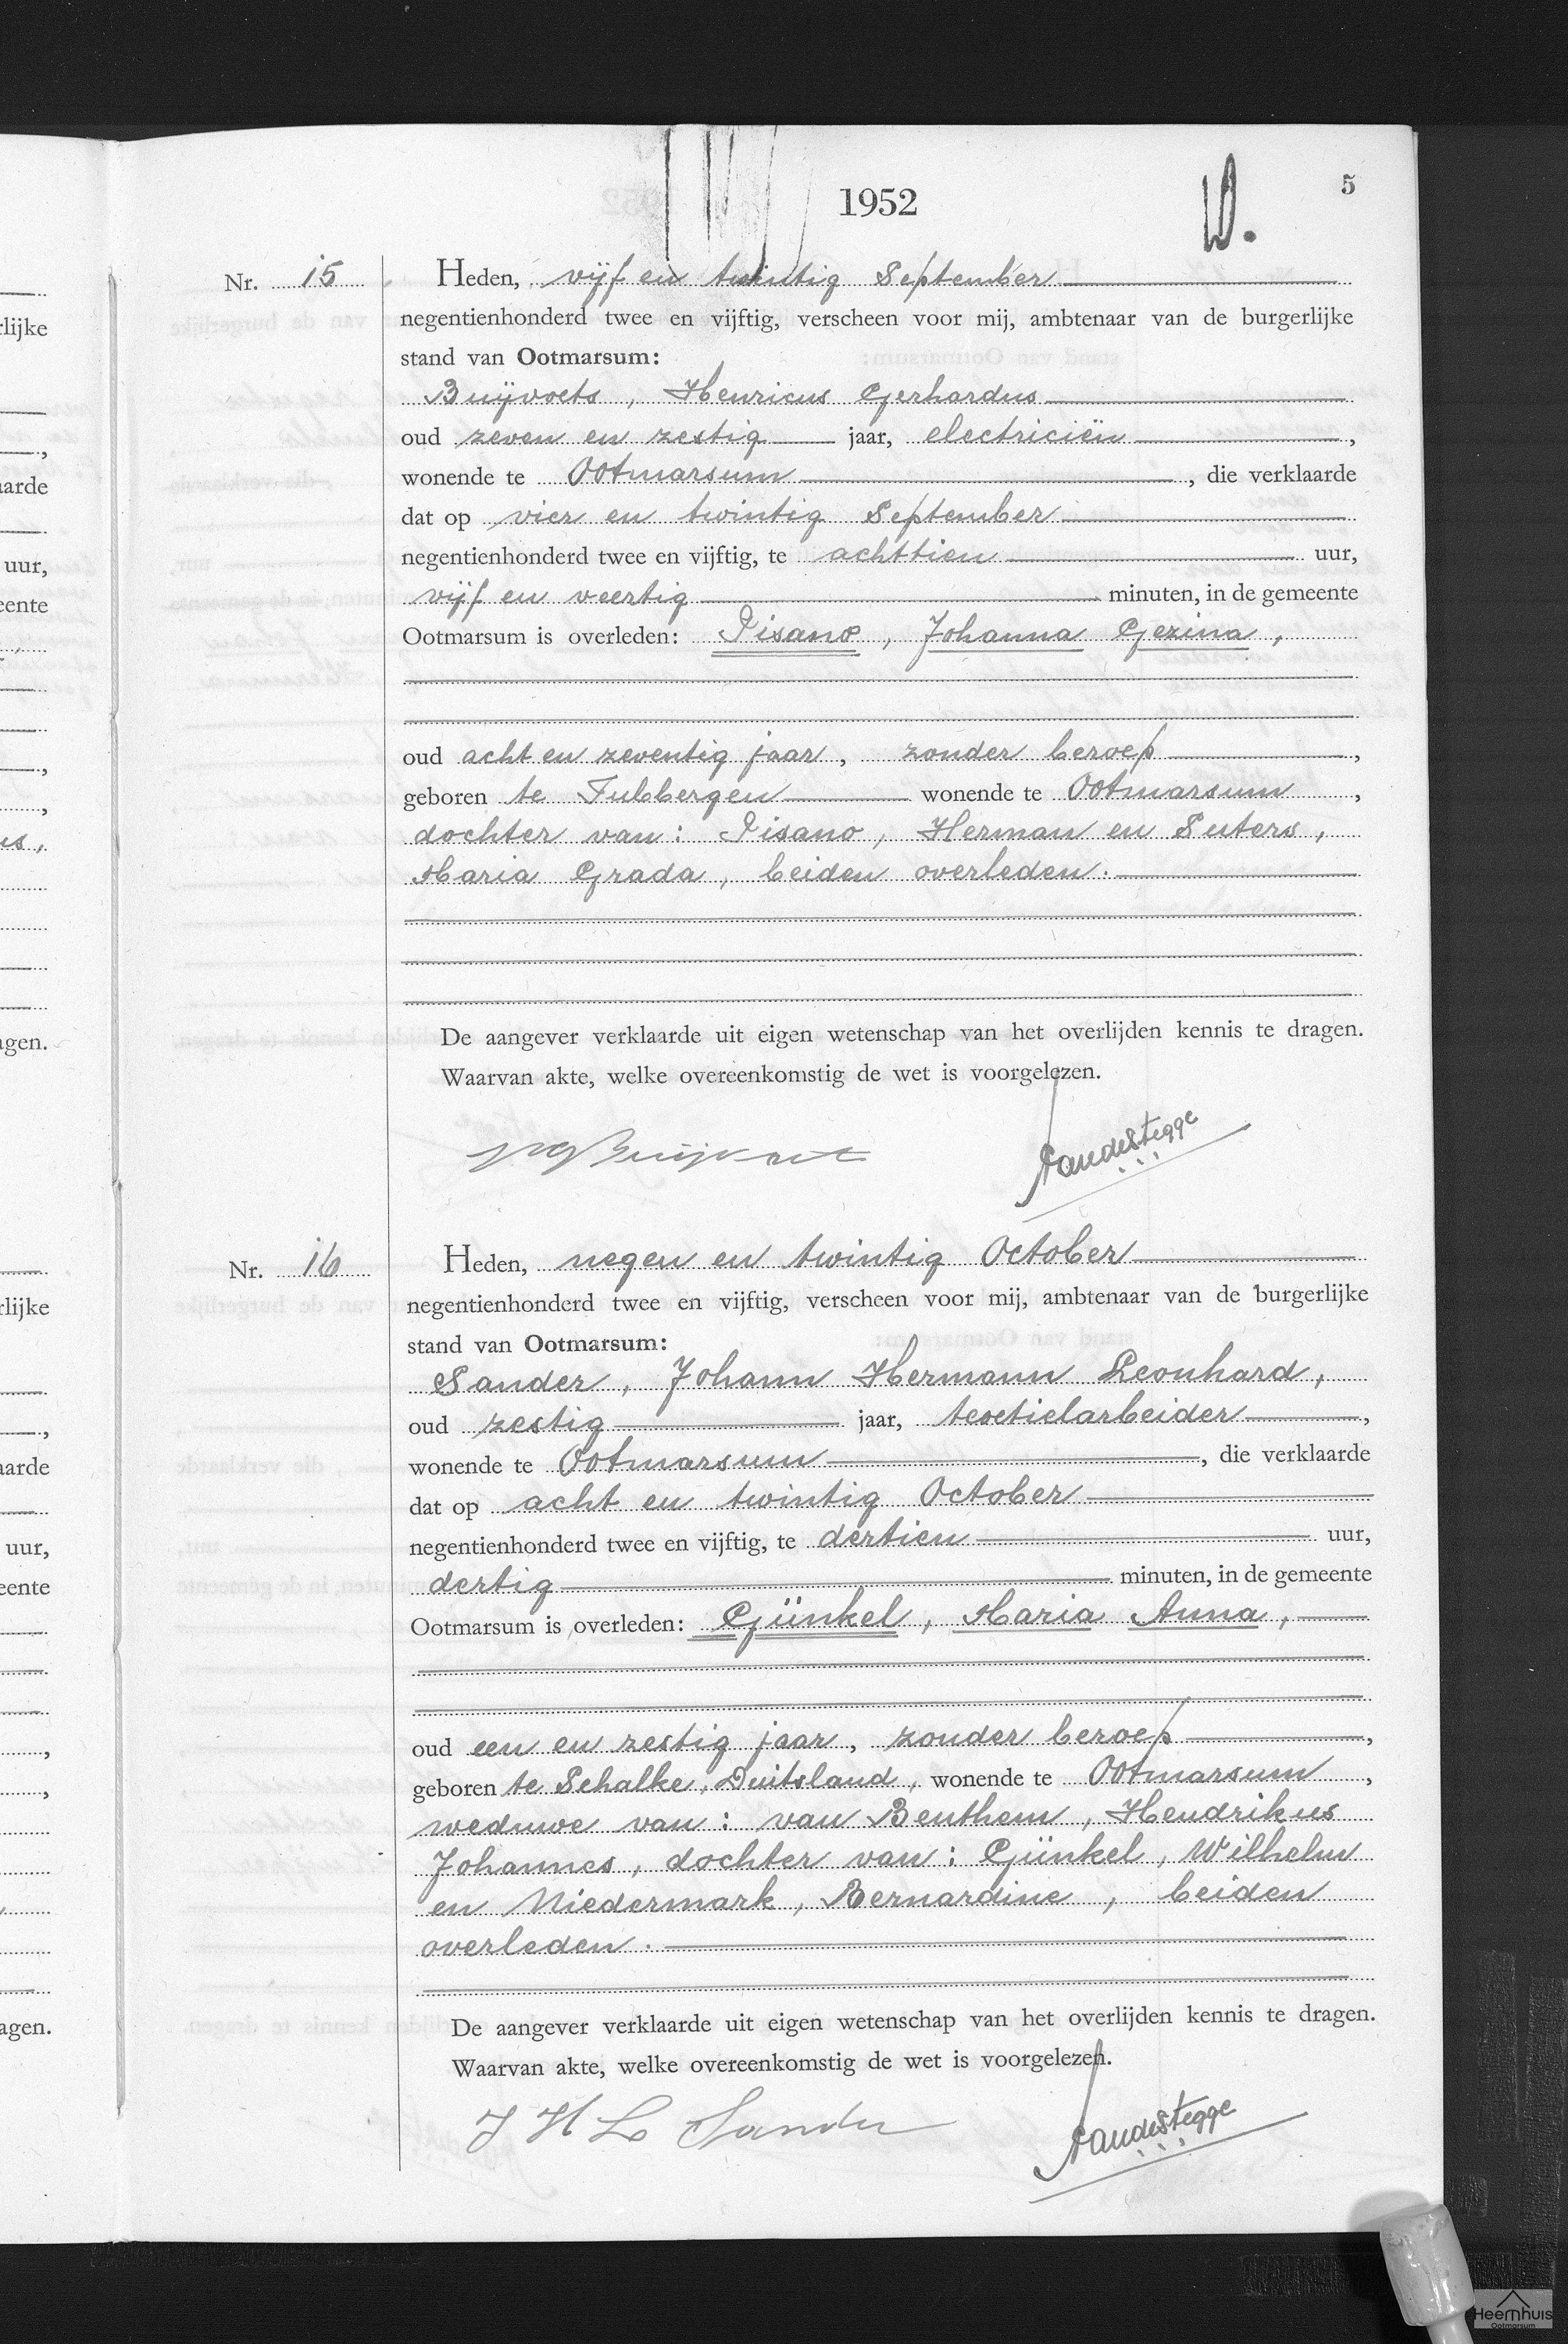 1952
5
Nr. 15
Heden, vijf en twintig September
negentienhonderd twee en vijftig, verscheen voor mij, ambtenaar van de burgerlijke
stand van Ootmarsum:
Buijvoets, Henricus Gerhardus
oud zeven en zestig jaar, electriciën,
wonende te Ootmarsum, die verklaarde
dat op vier en twintig September
negentienhonderd twee en vijftig, te achttien uur,
vijf en veertig minuten, in de gemeente
Ootmarsum is overleden: Pisano, Johanna Gezina,
oud acht en zeventig jaar, zonder beroep,
geboren te Tubbergen wonende te Ootmarsum,
dochter van: Pisano, Herman en Suters,
Maria Grada, beiden overleden.
De aangever verklaarde uit eigen wetenschap van het overlijden kennis te dragen.
Waarvan akte, welke overeenkomstig de wet is voorgelezen.
Nr. 16
Heden, negen en twintig October
negentienhonderd twee en vijftig, verscheen voor mij, ambtenaar van de burgerlijke
stand van Ootmarsum:
Sander, Johann Hermann Leonhard,
oud zestig jaar, textielarbeider,
wonende te Ootmarsum, die verklaarde
dat op acht en twintig October
negentienhonderd twee en vijftig, te dertien uur,
dertig minuten, in de gemeente
Ootmarsum is overleden: Günkel, Maria Anna,
oud een en zestig jaar, zonder beroep,
geboren te Schalke, Duitsland, wonende te Ootmarsum,
weduwe van: van Benthem, Hendrikus
Johannes, dochter van: Günkel, Wilhelm
en Niedermark, Bernardine, beiden
overleden.
De aangever verklaarde uit eigen wetenschap van het overlijden kennis te dragen.
Waarvan akte, welke overeenkomstig de wet is voorgelezen.
J H L Sander
Heemhuis
Ootmarsum